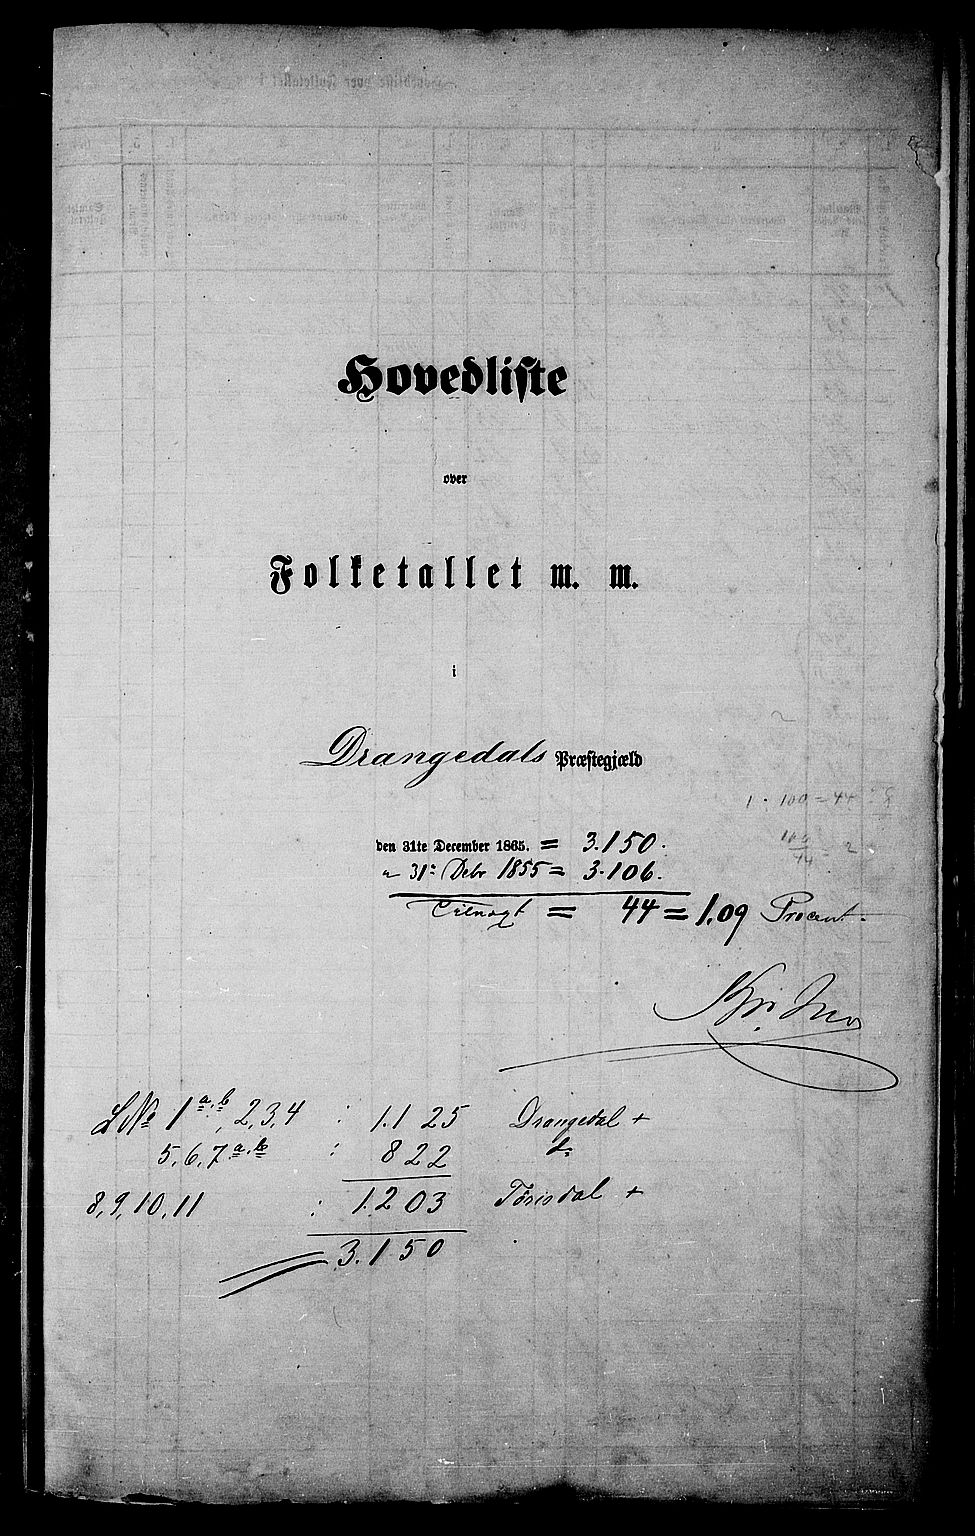 Hovedliste
over
Folketallet m. m.
i
Drangedals Præstegjæld
1 : 100 = 44
den 31te December 1865. = 3.150.
" 31e Debr 1855 = 3.106.
Tilvæxt = 44 = 1.09 Procent.
LNo 1 a.b, 2, 3, 4 : 1.125 Drangedal +
5, 6, 7 a.b : 822 do
8, 9, 10, 11 : 1.203 Tørisdal +
3.150